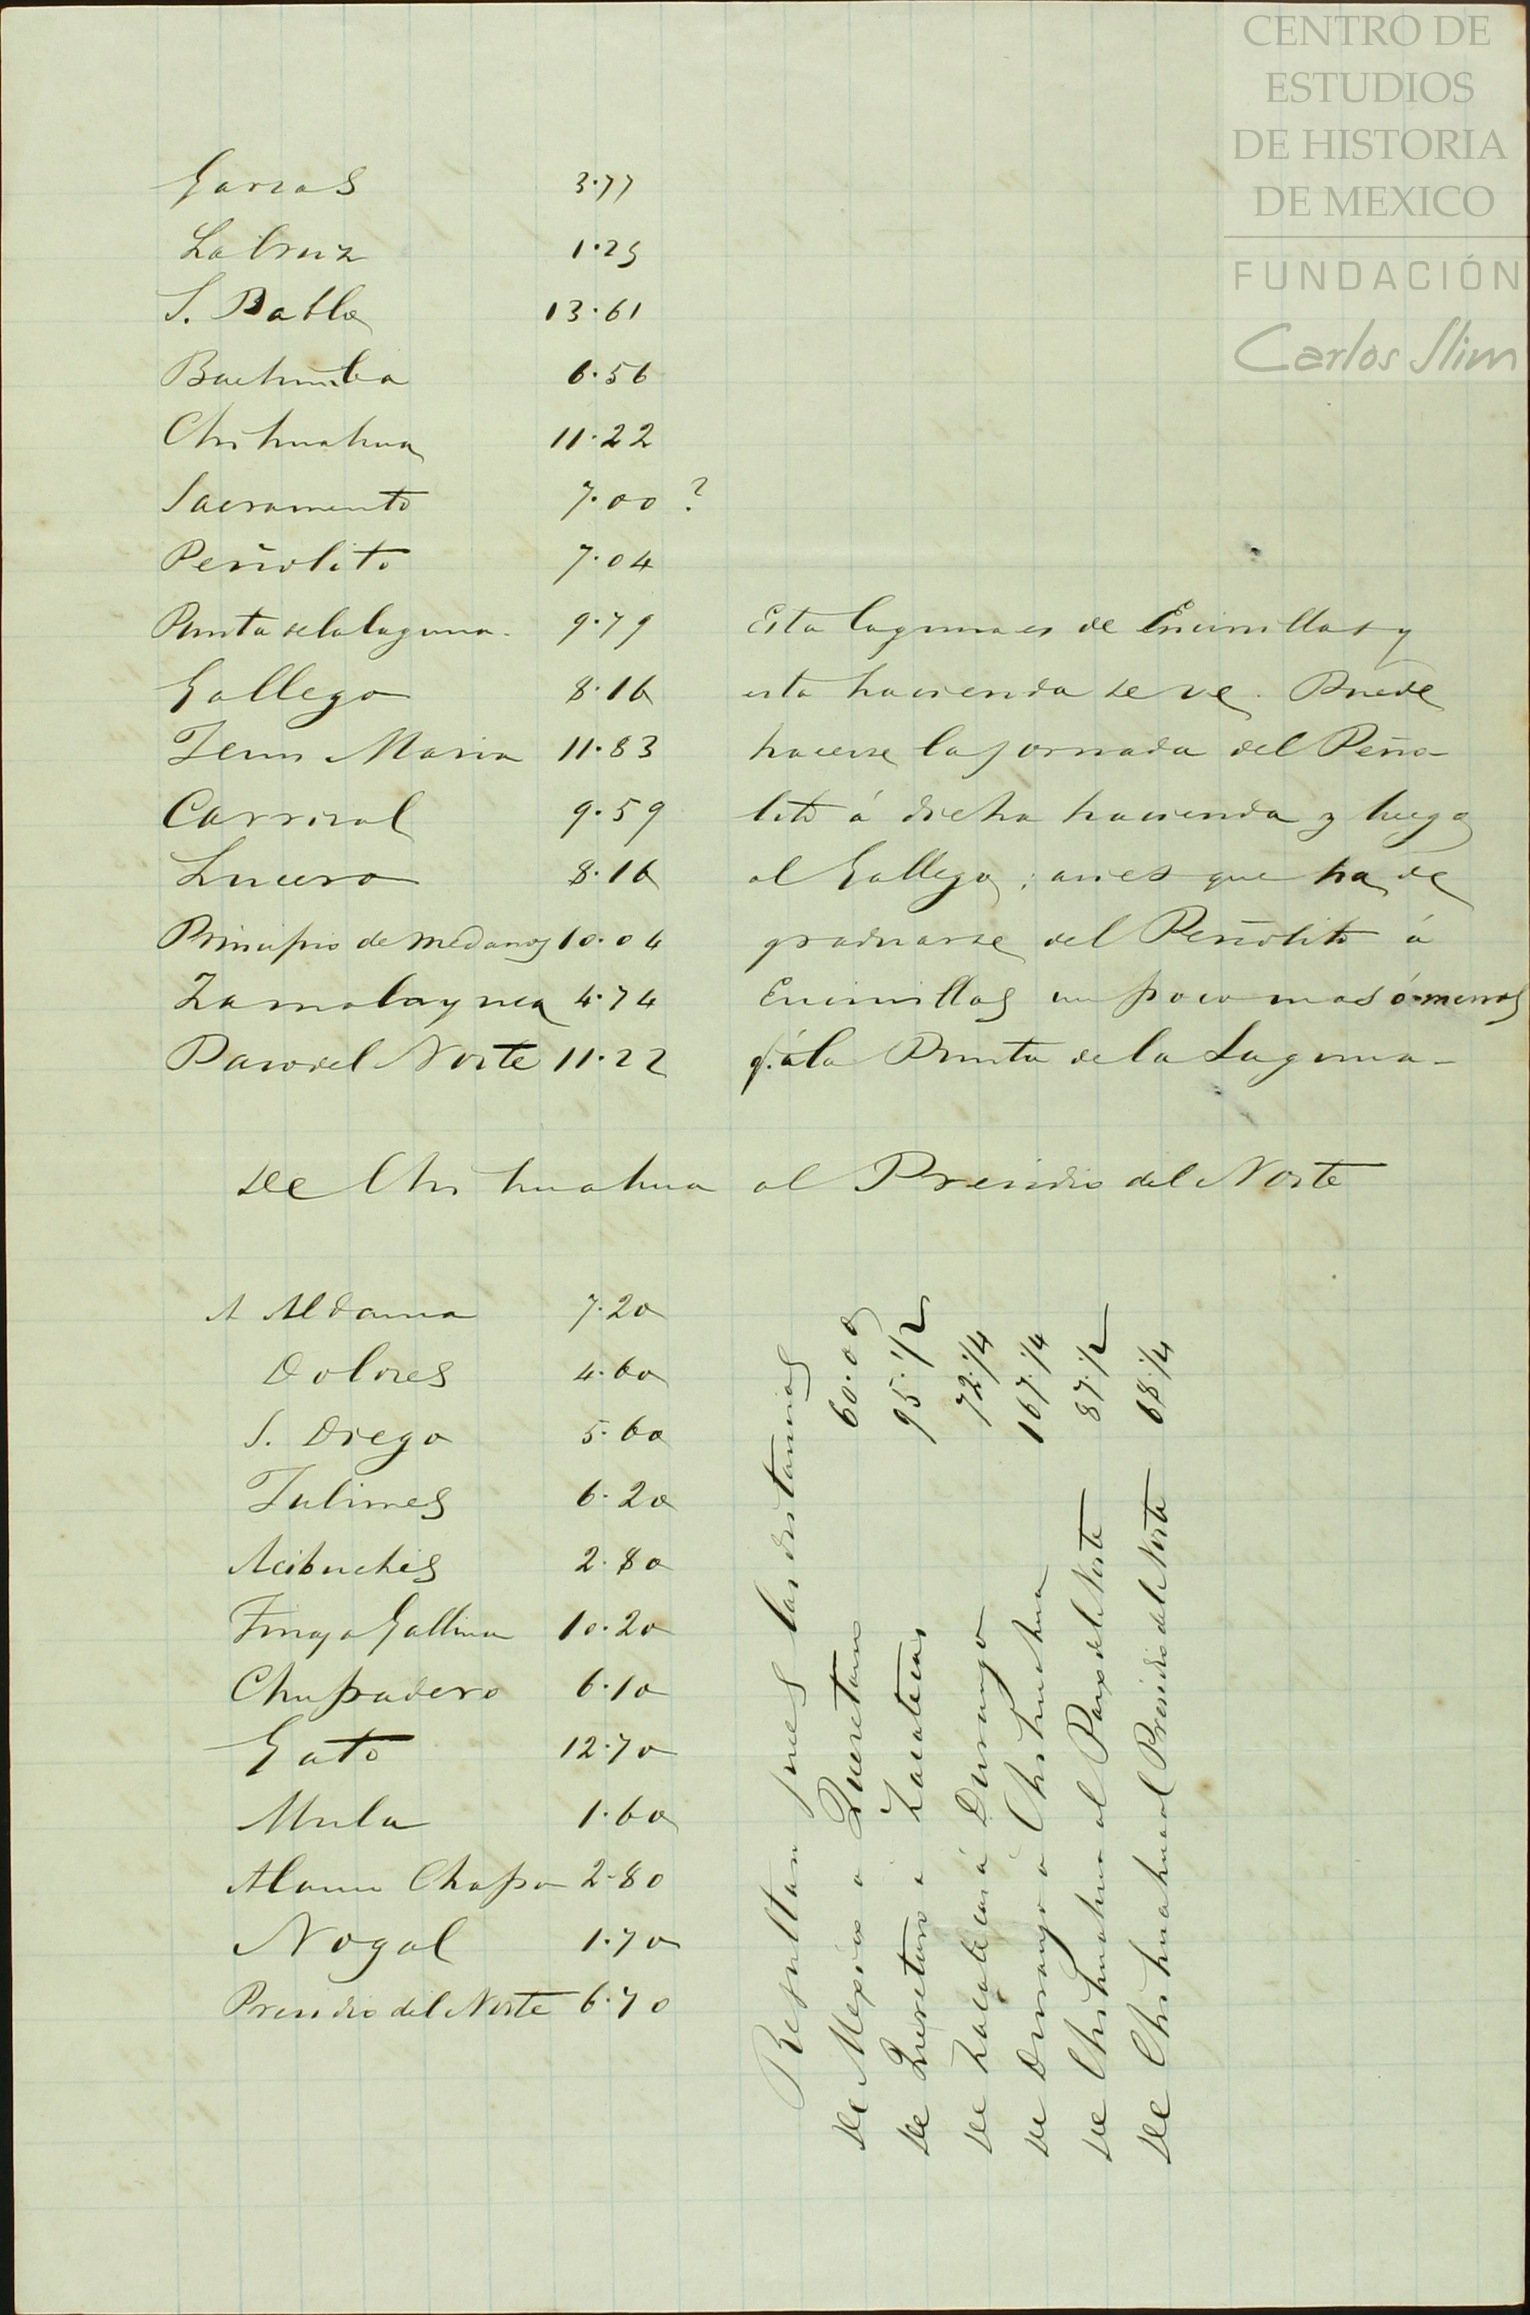 CENTRO DE
ESTUDIOS
DE HISTORIA
DE MEXICO
FUNDACIÓN
Carlos Slim
Garzas 3.77
La Cruz 1.25
S. Pablo 13.61
Bachimba 6.56
Chihuahua 11.22
Sacramento 7.00 ?
Peñolito 7.04
Punta de la laguna. 9.79
Gallego 8.16
Jesus Maria 11.83
Carrizal 9.59
Lucero 8.16
Principio de medanos 10.04
Zamalayuca 4.74
Paso del Norte 11.22
Esta laguna es de Encinillas y
esta hacienda se ve. Puede
hacerse la jornada del Peño-
lito á dicha hacienda y luego
al Gallego; asi es que ha de
graduarse del Peñolito á
Encinillas un poco mas ó menos
q. á la Punta de la Laguna-
De Chihuahua al Presidio del Norte
A Aldama 7.20
Dolores 4.60
S. Diego 5.60
Julimes 6.20
Acibuches 2.80
Gallina 10.20
Chupadero 6.10
Gato 12.70
Mula 1.60
Alamo Chapo 2.80
Nogal 1.70
Presidio del Norte 6.70
Resultan pues las distancias
De Mexico a Queretaro 60.00
De Queretaro a Zacatecas 95.1/2
De Zacatecas á Durango 72.1/4
De Durango a Chihuahua 167.1/4
De Chihuahua al Paso del Norte 87.1/2
De Chihuahua al Presidio del Norte 68.1/4